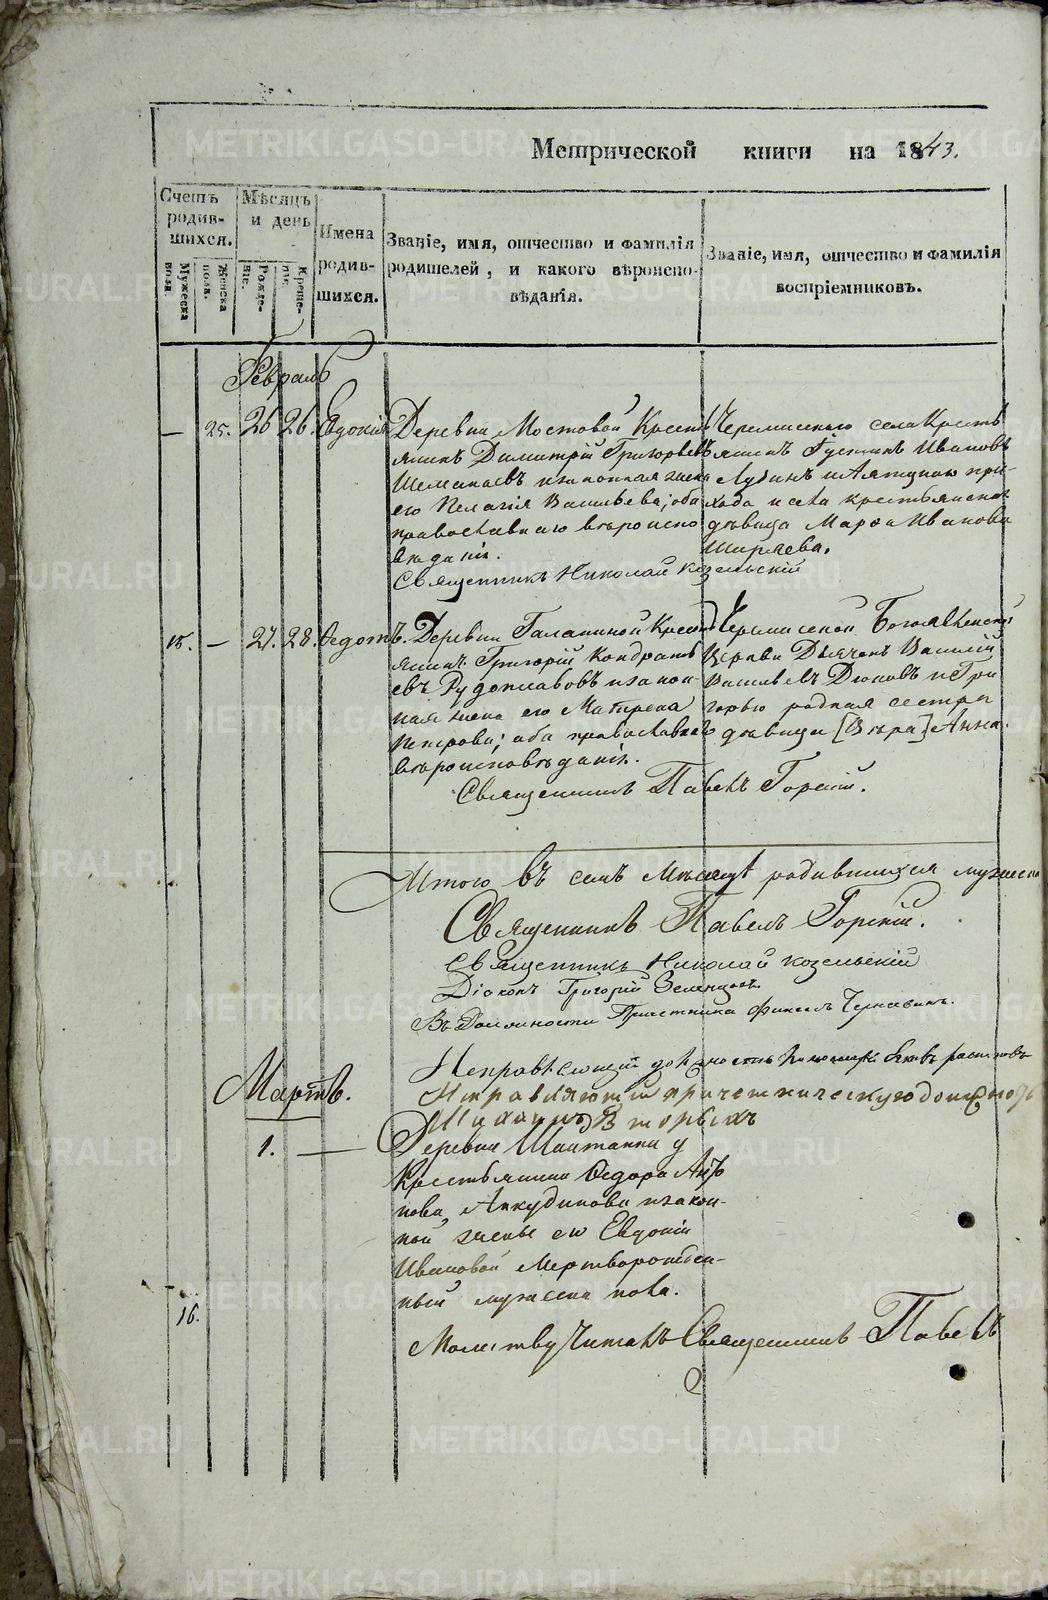 Метрической книги на 1843.
Счетъ родив-шихся.
Мужеска пола.
Женска пола.
Мѣсяцъ и день
Рожде-нія.
Креще-нія.
Имена родив-шихся.
Званіе, имя, отчество и фамилія
родителей, и какого вѣроиспо-
вѣданія.
Званіе, имя, отчество и фамилія
воспріемниковъ.
Февраль
— 25. 26 26. Евдокія
Деревни Мостовой Кресть
янинъ Димитрій Григорьевъ
Шеманаевъ и законная жена
его Пелагія Васильева; оба
православнаго вѣроиспо
вѣданія.
Священникъ Николай Козельскій
Черемискаго села Кресть
янинъ Іустинъ Ивановъ
и села крестьянская
дѣвица Марѳа Иванова
Ширяева.
15. — 27. 28. Ѳедотъ.
Деревни Галаниной Кресть
янинъ Григорій Кондрать
евъ и закон-
ная жена его Матрена
Петрова; оба православнаго
вѣроисповѣданія.
Священникъ Павелъ Горскій.
Черемиской Богоявленской
Церкви Дьячекъ Василій
Васильевъ и Гри
горью родная сестра
дѣвица [Вѣра] Анна.
Итого въ семъ мѣсяцѣ родившихся мужеска
Священникъ Павелъ Горскій.
Священникъ Николай Козельскій
Діаконъ Григорій Зеленцовъ.
Въ Должности Причетника Чернавинъ.
Исправляющій должность
Исправляющій причетническую должность
Михаилъ Вторыхъ
Мартъ.
1. —
Деревни Шайтанки у
Крестьянина Ѳедора Анѳи
нова Анкудинова и закон-
ной жены его Евдокіи
Ивановой Мертворожден-
ный мужеска пола.
16.
Молитву Читалъ Священникъ Павелъ
METRIKI.GASO-URAL.RU